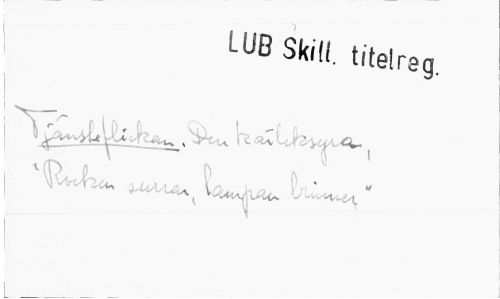 LUB Skill. titelreg.
Tjänsteflickan. Den kärleksyra,
"Rocken surrar, lampan brinner"